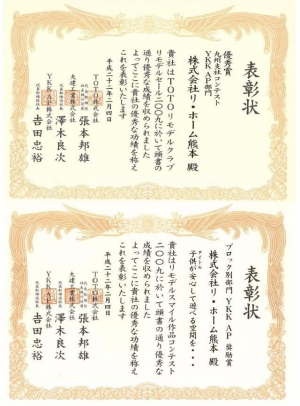 表彰状
優秀賞
九州支社コンテスト
YKK AP部門
株式会社リ・ホーム熊本 殿
貴社はTOTOリモデルクラブ
リモデルセール二〇〇九に於いて頭書の
通り優秀な成績を収められました
よってここに貴社の優秀な功績を称え
これを表彰いたします
平成二十二年二月四日
TOTO株式会社
張本邦雄
大建工業株式会社
澤木良次
YKK AP株式会社
吉田忠裕
表彰状
ブロック別部門 YKK AP 奨励賞
株式会社リ・ホーム熊本 殿
タイトル
子供が安心して遊べる空間を・・・
貴社はリモデルスマイル作品コンテスト
二〇〇九に於いて頭書の通り優秀な
成績を収められました
よってここに貴社の優秀な功績を称え
これを表彰いたします
平成二十二年二月四日
TOTO株式会社
張本邦雄
大建工業株式会社
澤木良次
YKK AP株式会社
吉田忠裕